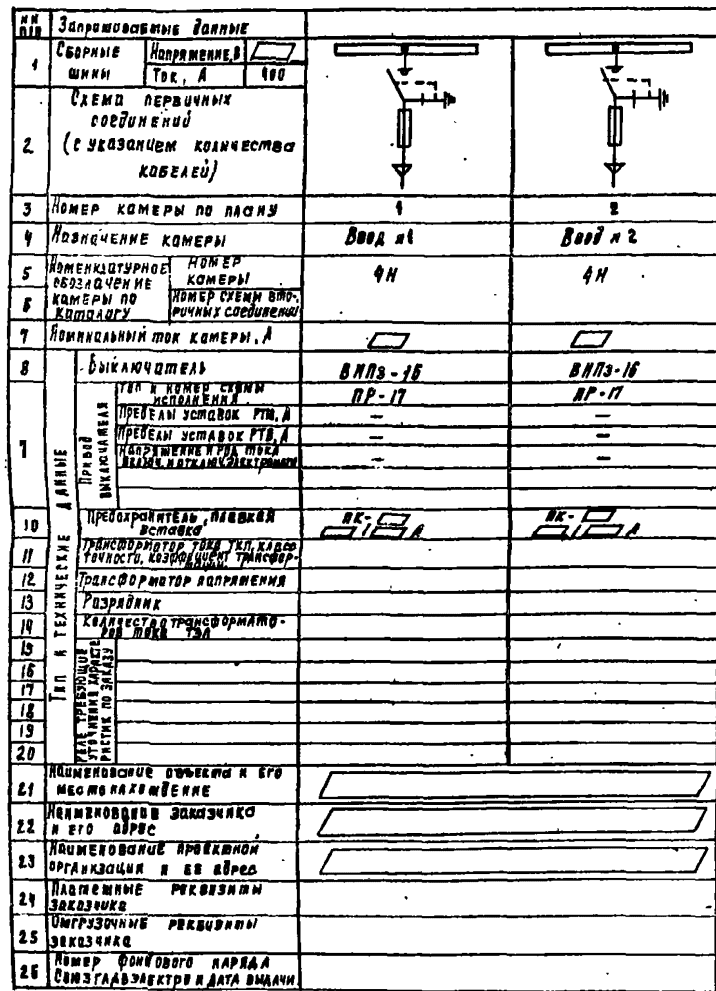 НН п/п Запрашиваемые данные
1 Сборные шины Напряжение, В
Ток, А 400
2 Схема первичных
соединений
(с указанием количества
кабелей)
3 Номер камеры по плану 1 2
4 Назначение камеры Ввод №1 Ввод №2
5 Номенклатурное обозначение камеры по каталогу Номер камеры 4Н 4Н
6 Номер схемы вторичных соединений
7 Номинальный ток камеры, А
Тип и технические данные
8 Выключатель ВНПз-16 ВНПз-16
Привод выключателя
Тип и номер схемы исполнения ПР-17 ПР-17
Пределы уставок РТМ, А — —
Пределы уставок РТВ, А — —
Напряжение и род тока включ. и отключ. электромагн. — —
10 Предохранитель, плавкая вставка ПК- / А ПК- / А
11 Трансформатор тока ТКП, класс точности, коэффициент трансформации
12 Трансформатор напряжения
13 Разрядник
14 Количество трансформаторов тока ТЗЛ
15
16
17
18
19
20
Реле требующие уточнения характеристик по заказу
21 Наименование объекта и его
местонахождение
22 Наименование заказчика
и его адрес
23 Наименование проектной
организации и её адрес
24 Платежные реквизиты
заказчика
25 Отгрузочные реквизиты
заказчика
26 Номер фондового наряда
Союзглавэлектро и дата выдачи